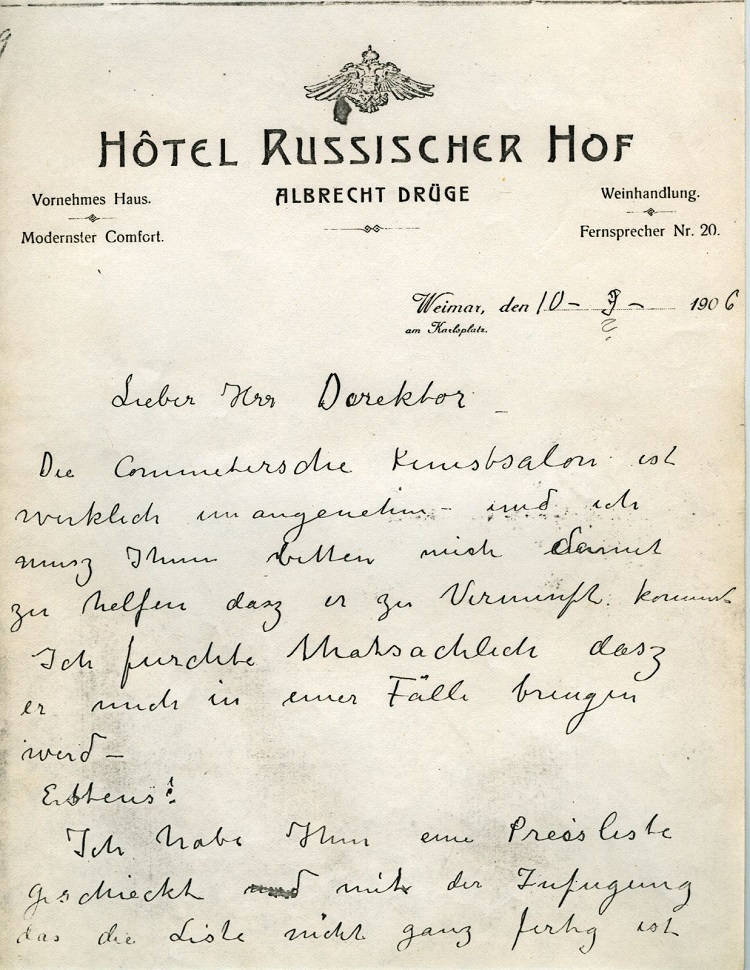 HÔTEL RUSSISCHER HOF
ALBRECHT DRÜGE
Vornehmes Haus.
Modernster Comfort.
Weinhandlung.
Fernsprecher Nr. 20.
Weimar, den 10 – 9 – 1906
am Karlsplatz.
?
Lieber Herr Derektor –
Die Commetersche Kunstsalon ist
werklich unangenehm – und ich
musz Ihnen bitten mich damit
zu helfen dasz er zu Vernunft kommt
Ich furchte thatsachlich dasz
er mich in einer Fälle brengen
werd –
Erstens:
Ich habe Ihnen eine Preisliste
geschieckt und mit der Zufugung
das die Liste nicht ganz fertig ist